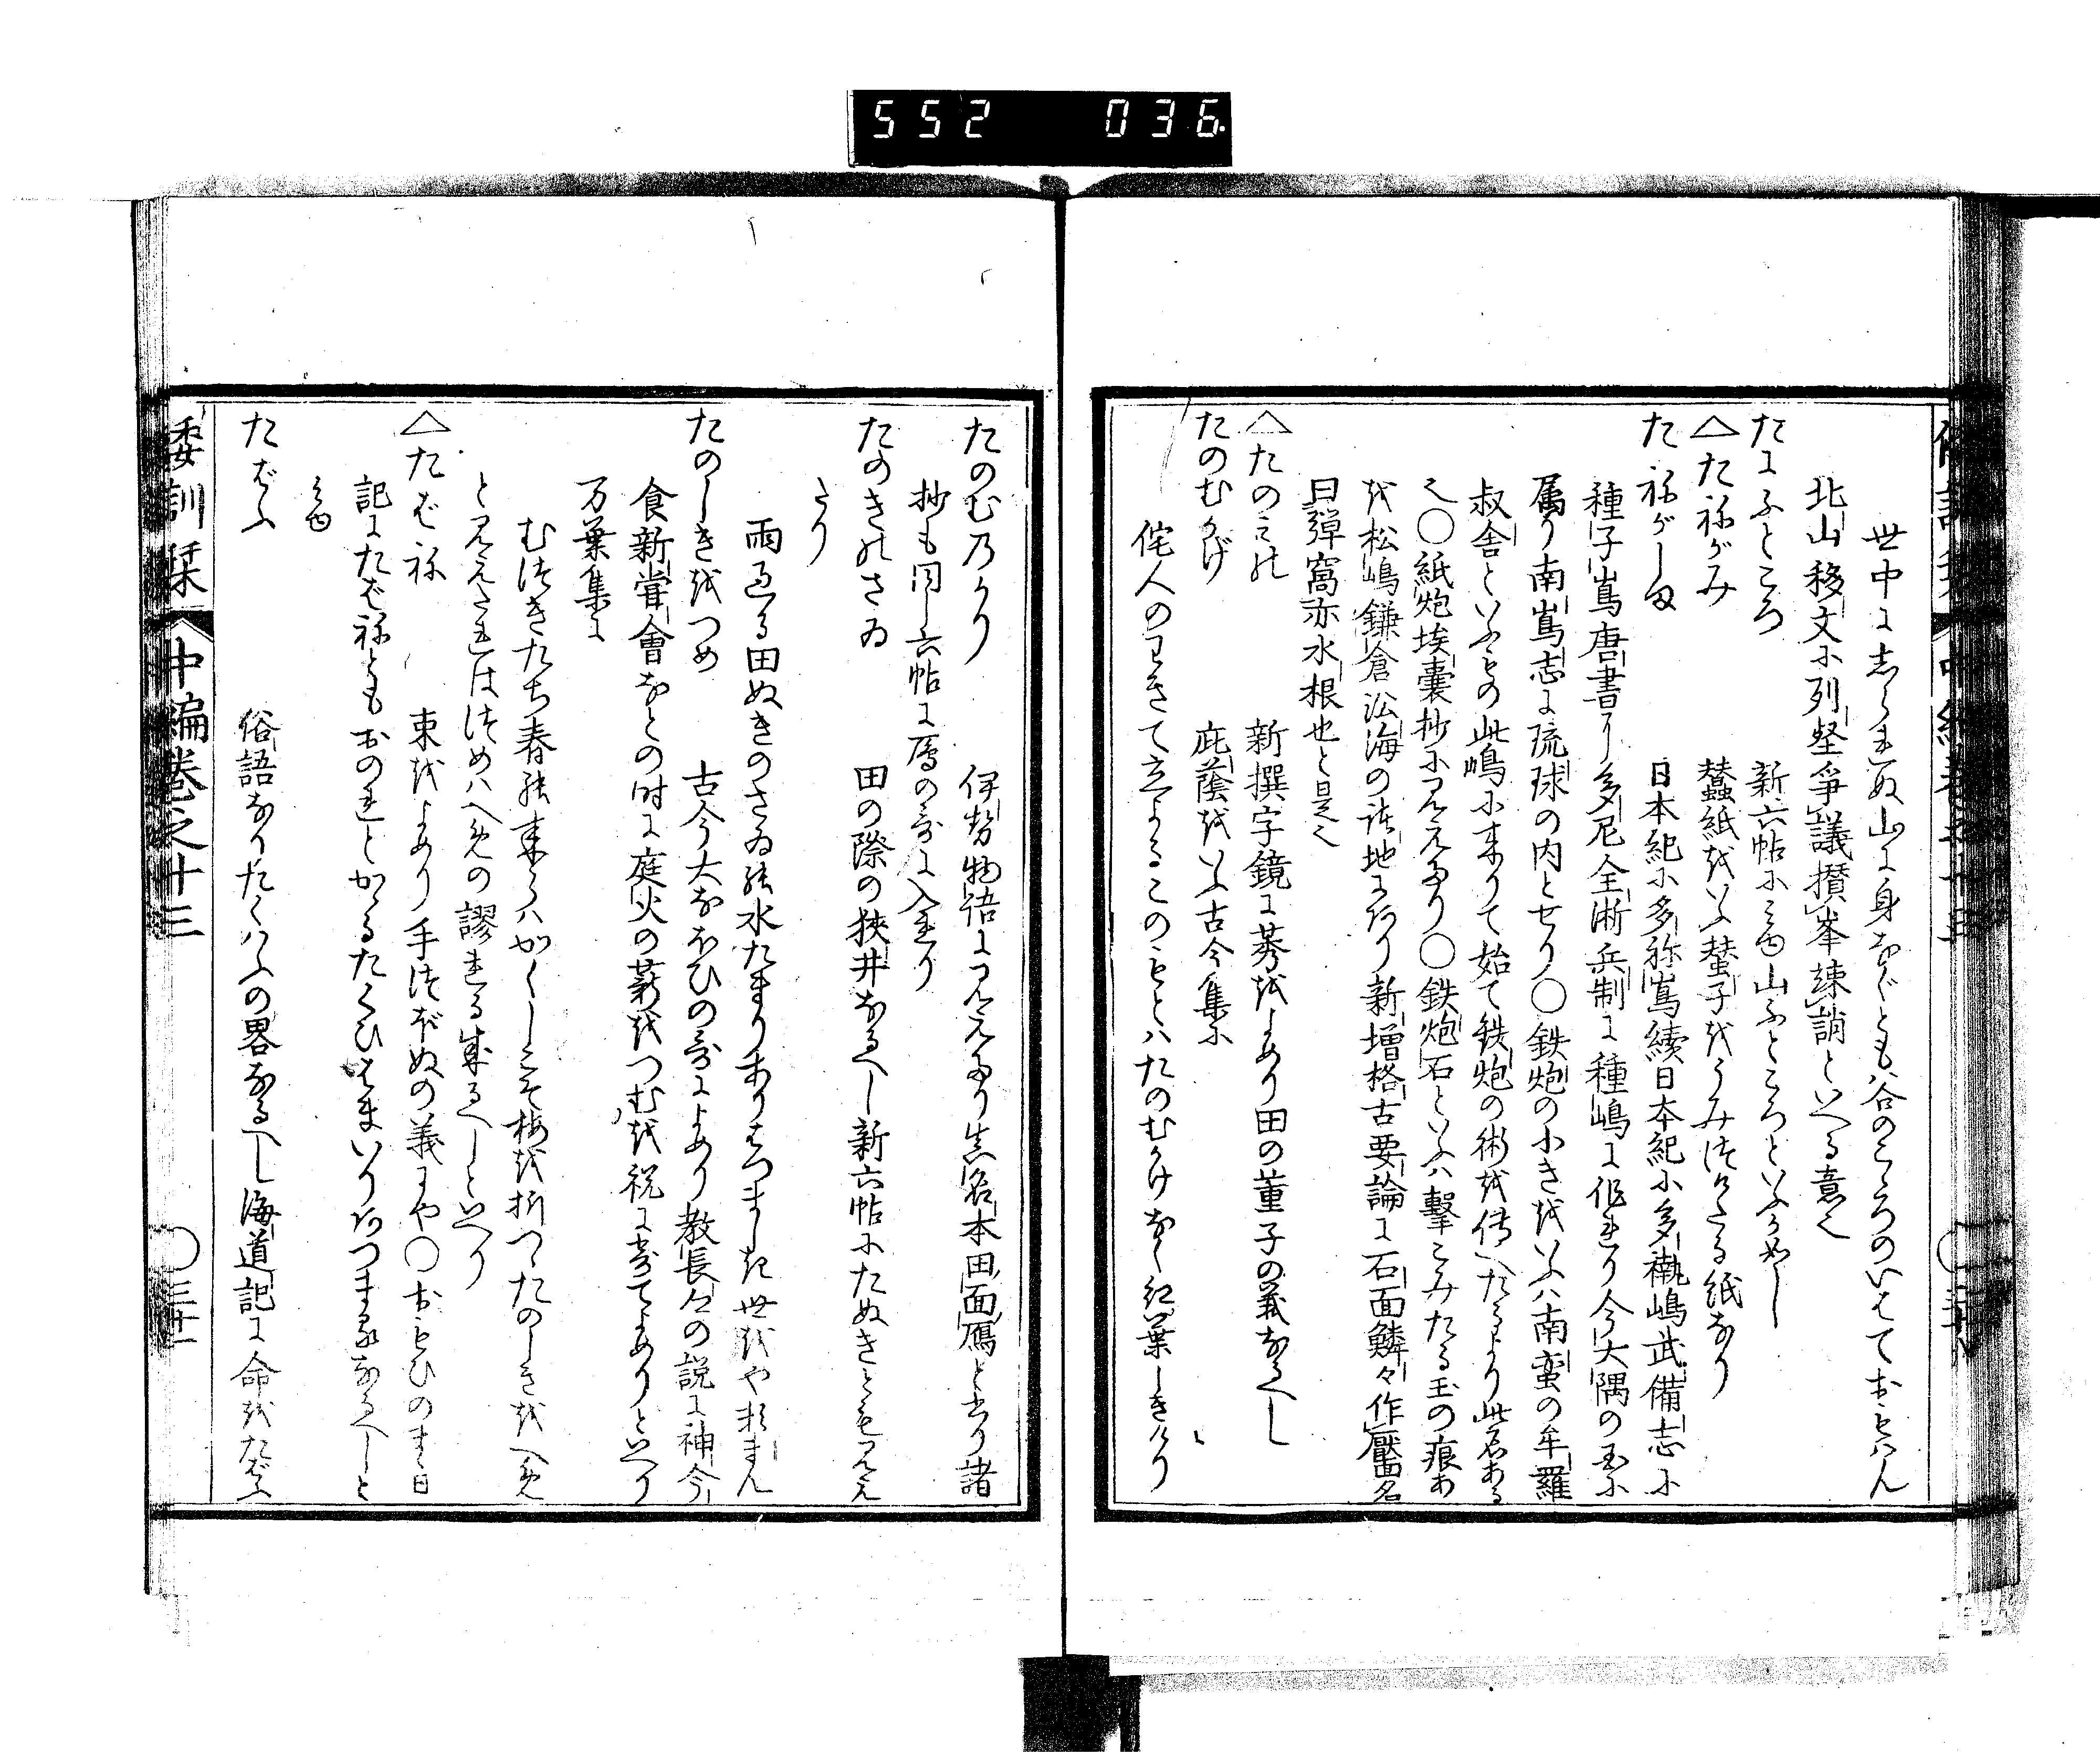 552 036
世中にしられぬ山に身なぐとも谷のこゝろのいはておもはん
北山移文に列壑爭議攅峯竦誚といへる意也
たにふところ 新六帖にみゆ山ふところといふか如し
△たねがみ 蠶紙をいふ蠶子をうみつけたる紙なり
たねがしま 日本紀に多祢嶌續日本紀に多褹嶋武備志に
種子嶌唐書に多尼全浙兵制に種嶋に作れり今大隅の国に
属り南嶌志に琉球の内とせり〇鉄炮の小きをいふハ南蛮の牟羅
叔舎といふもの此嶋に来りて始て鉄炮の術を傳へたるより此名ある
也〇紙炮埃囊抄に見えたり〇鉄炮石といふハ撃こみたる玉の痕あ
を松嶋鎌倉沿海の諸地にあり新増格古要論に石面鱗々作靨名
曰彈窩亦水根也と是也
△たのこれ 新撰字鏡に莠をよめり田の董子の義なるへし
たのむかげ 庇蔭をいふ古今集に
侘人のわきて立よるこのもとハたのむかけなく紅葉しきけり
たのむのかり 伊勢物語に見えたり真名本田面鴈と書り諸
抄も同し六帖に鴈の哥に入れり
たのきのさゐ 田の際の狭井なるへし新六帖にたぬきとも見え
たり
雨過る田ぬきのさゐの水たまりあまりはつましき世をや頼まん
たのしきをつめ 古今大なほひの哥によめり教長々の説に神今
食新嘗會なとの時に庭火の薪をつむを祝に寄てよめりといへり
万葉集に
むつきたち春の来らハかくしこそ梅を折つゝたのしきをへめ
と見えたれはつめハへめの謬れる成るへしといへり
△たばね 束をよめり手つがぬの義にや〇おもひのまゝ日
記にたばねともおのれとかるたくひはまいりあつまるなるへしと
みゆ
たばふ 俗語なりたくハふの畧なるへし海道記に命をたばふ
倭訓栞 中編巻之十三 〇三十一